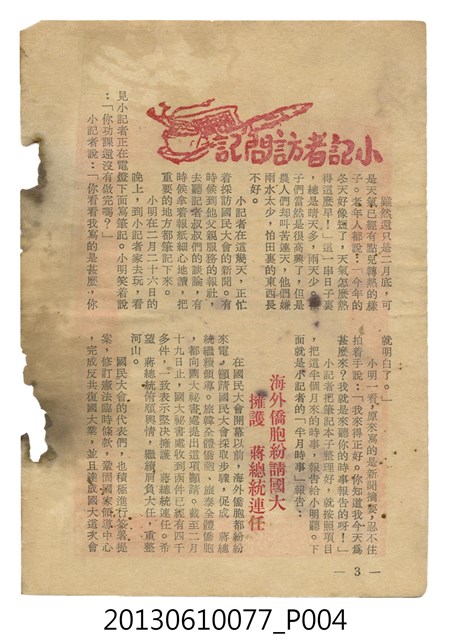 小記者訪問記
雖然還只是二月底,可
是天氣已經有點兒轉熱的樣
子。老年人都說:「今年的
冬天好像短了,天氣怎麼熱
得這麼早!」這一串日子裏
,總是晴天多,雨天少。孩
子們當然是很高興了,但是
農人們却叫苦連天,他們嫌
雨水太少,怕田裏的東西長
不好。
小記者在這幾天,正忙
着採訪國民大會的新聞。有
時候到他父親服務的報社,
去聽記者叔叔們的談論,有
時候拿着報紙細心地讀,把
重要的地方都筆記下來。
小明在二月二十六日的
晚上,到小記者家去玩,看
見小記者正在電燈下面寫筆記。小明笑着說
:「你功課還沒有做完嗎?」
小記者說:「你看看我寫的是甚麼,你
就明白了。」
小明一看,原來寫的是新聞摘要,忍不住
拍着手說:「我來得正好。你知道我今天爲
甚麼來?我就是來聽你的時事報告的呀!」
小記者把筆記本子整理好,就按照項目
,把這半個月來的時事,報告給小明聽。下
面就是小記者的「半月時事」報告:
海外僑胞紛請國大
擁護 蔣總統連任
在國民大會開幕以前,海外僑胞都紛紛
來電,願請國民大會採取步驟,促成 蔣總
統繼續領導。旅韓全體僑胞、旅泰全體僑胞
,都向國大秘書處提出這項願請。截至二月
十九日止,國大秘書處收到函件已經有四千
多件,一致表示堅决擁護 蔣總統連任。希
望 蔣總統俯順輿情,繼續肩負大任,重整
河山。
國民大會的代表們,也積極進行簽署提
案,修訂憲法臨時條款,鞏固國家領導中心
,完成反共復國大業,並且達成國大這次會
— 3 —
20130610077_P004